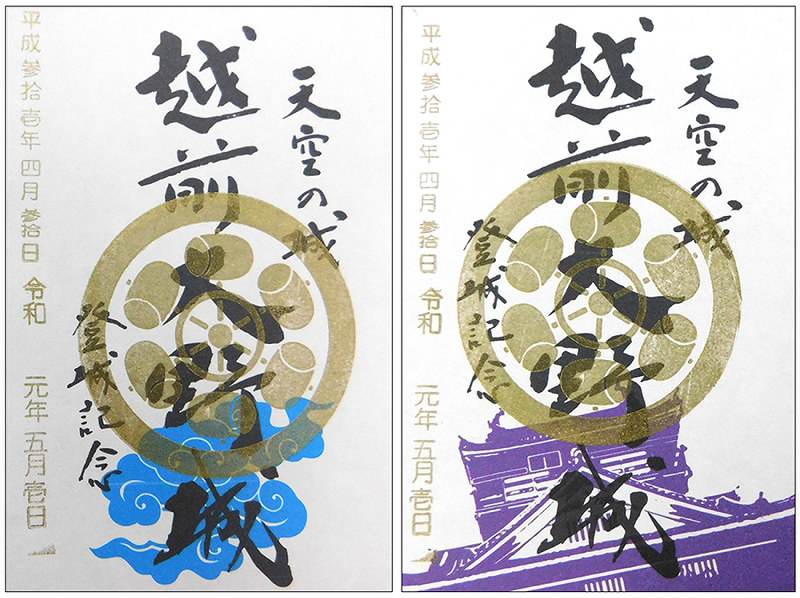 天空の城
越前大野城
登城記念
平成参拾壱年四月参拾日 令和元年五月壱日
天空の城
越前大野城
登城記念
平成参拾壱年四月参拾日 令和元年五月壱日